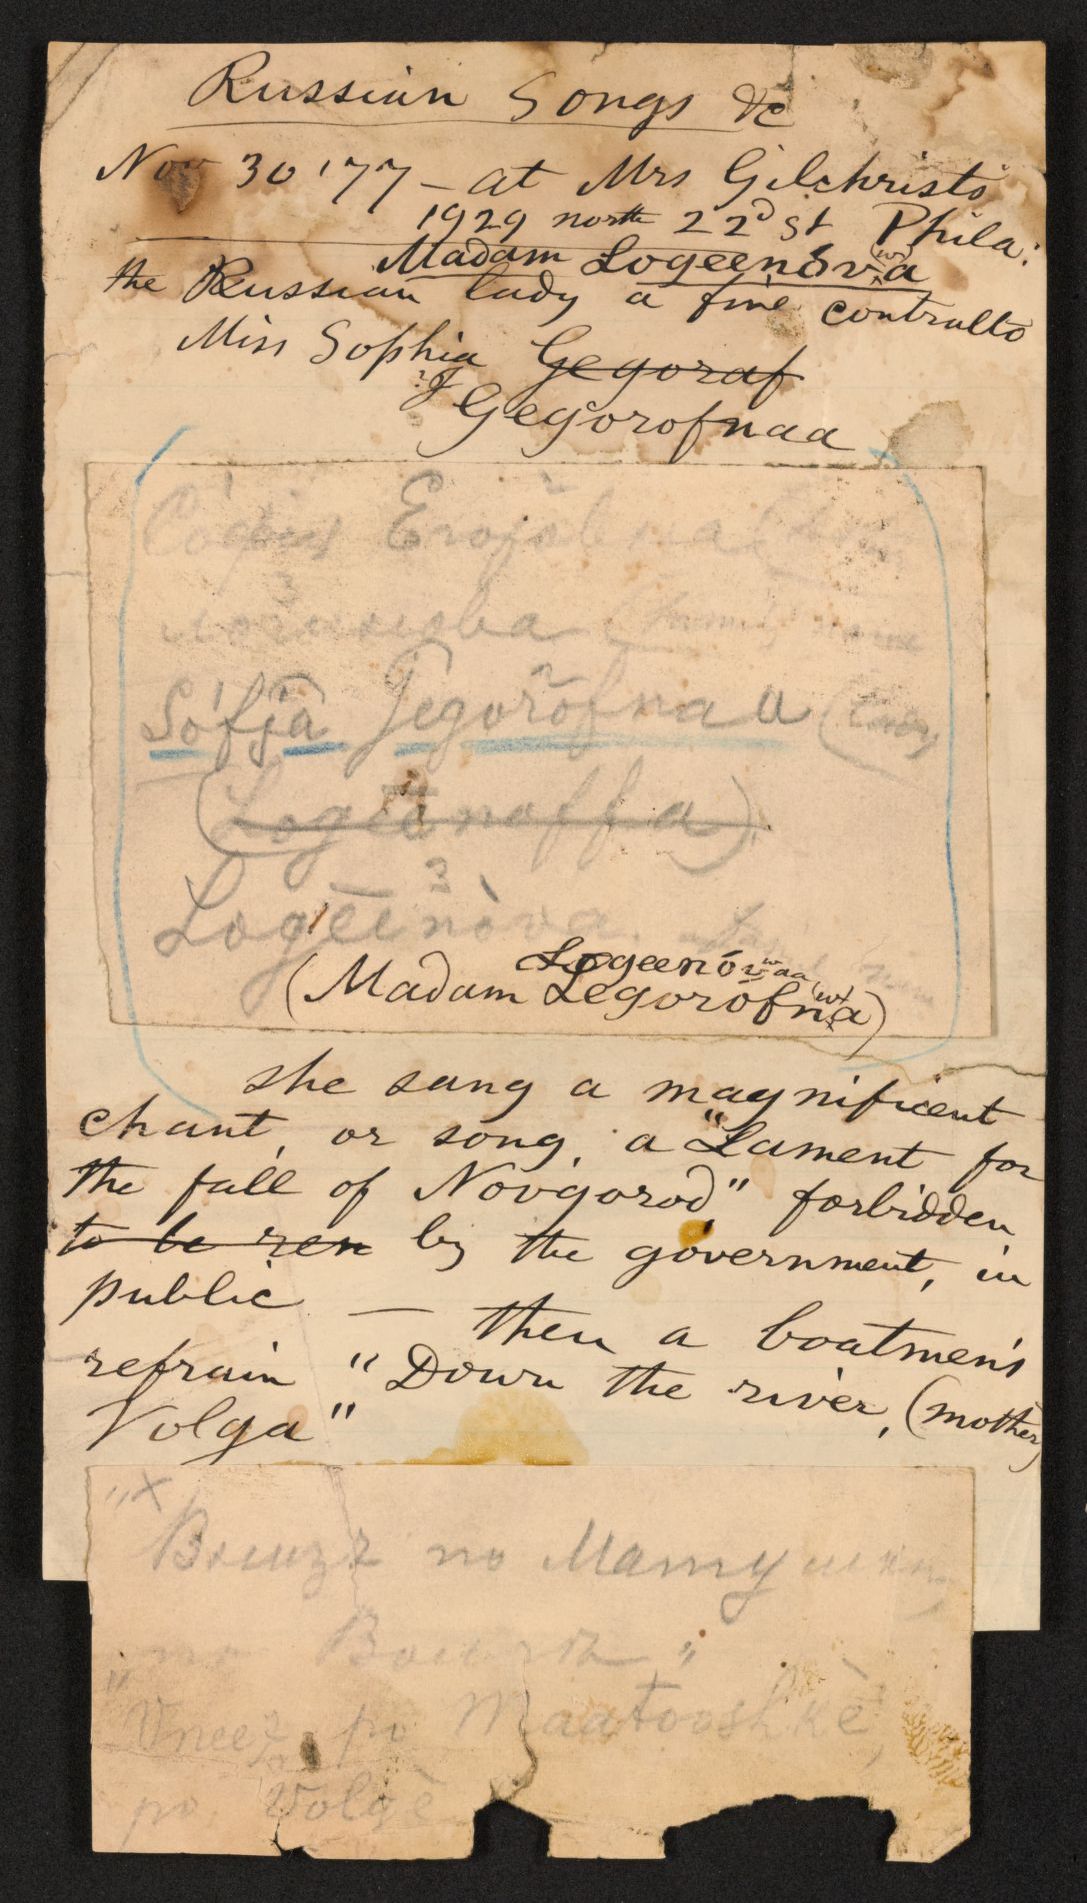 Russian Songs &c
Nov 30 '77 – at Mrs Gilchrist's
1929 north 22d st Phila:
Madam Logeenóva (w)
the Russian lady a fine contralto
Miss Sophia Gegoraf
? J
Gegorofnaa
Софія
(family name
Sófja Jegorófnaa (
(Logeenoffa)
3
Logēēnòva
Logeenóvaa w
(Madam Legorófna (w))
she sang a magnificent
chant, or song, a "Lament for
the fall of Novgorod" forbidden
to be ren by the government, in
public — then a boatmen's
refrain "Down the river, (mother)
Volga"
"x
Внизъ по Матушки
по "
"Vneez po Maatooshkè,
po Volgè